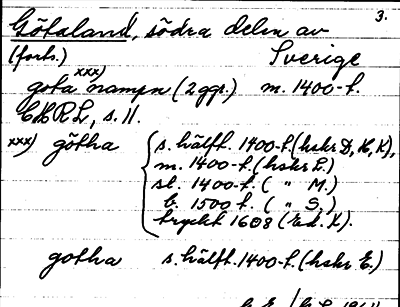 3.
Götaland, södra delen av
(forts.) Sverige
gota xxx) nampn (2 ggr.) m. 1400-t.
CKRL, s. 11.
xxx) götha { s. hälft. 1400-t. (hskr D, H, K),
m. 1400-t. (hskr L.)
sl. 1400-t. ( " M.)
b. 1500 t. ( " S.)
tryckt 1608 (Ed. K).
gotha s. hälft. 1400-t. (hskr E.)